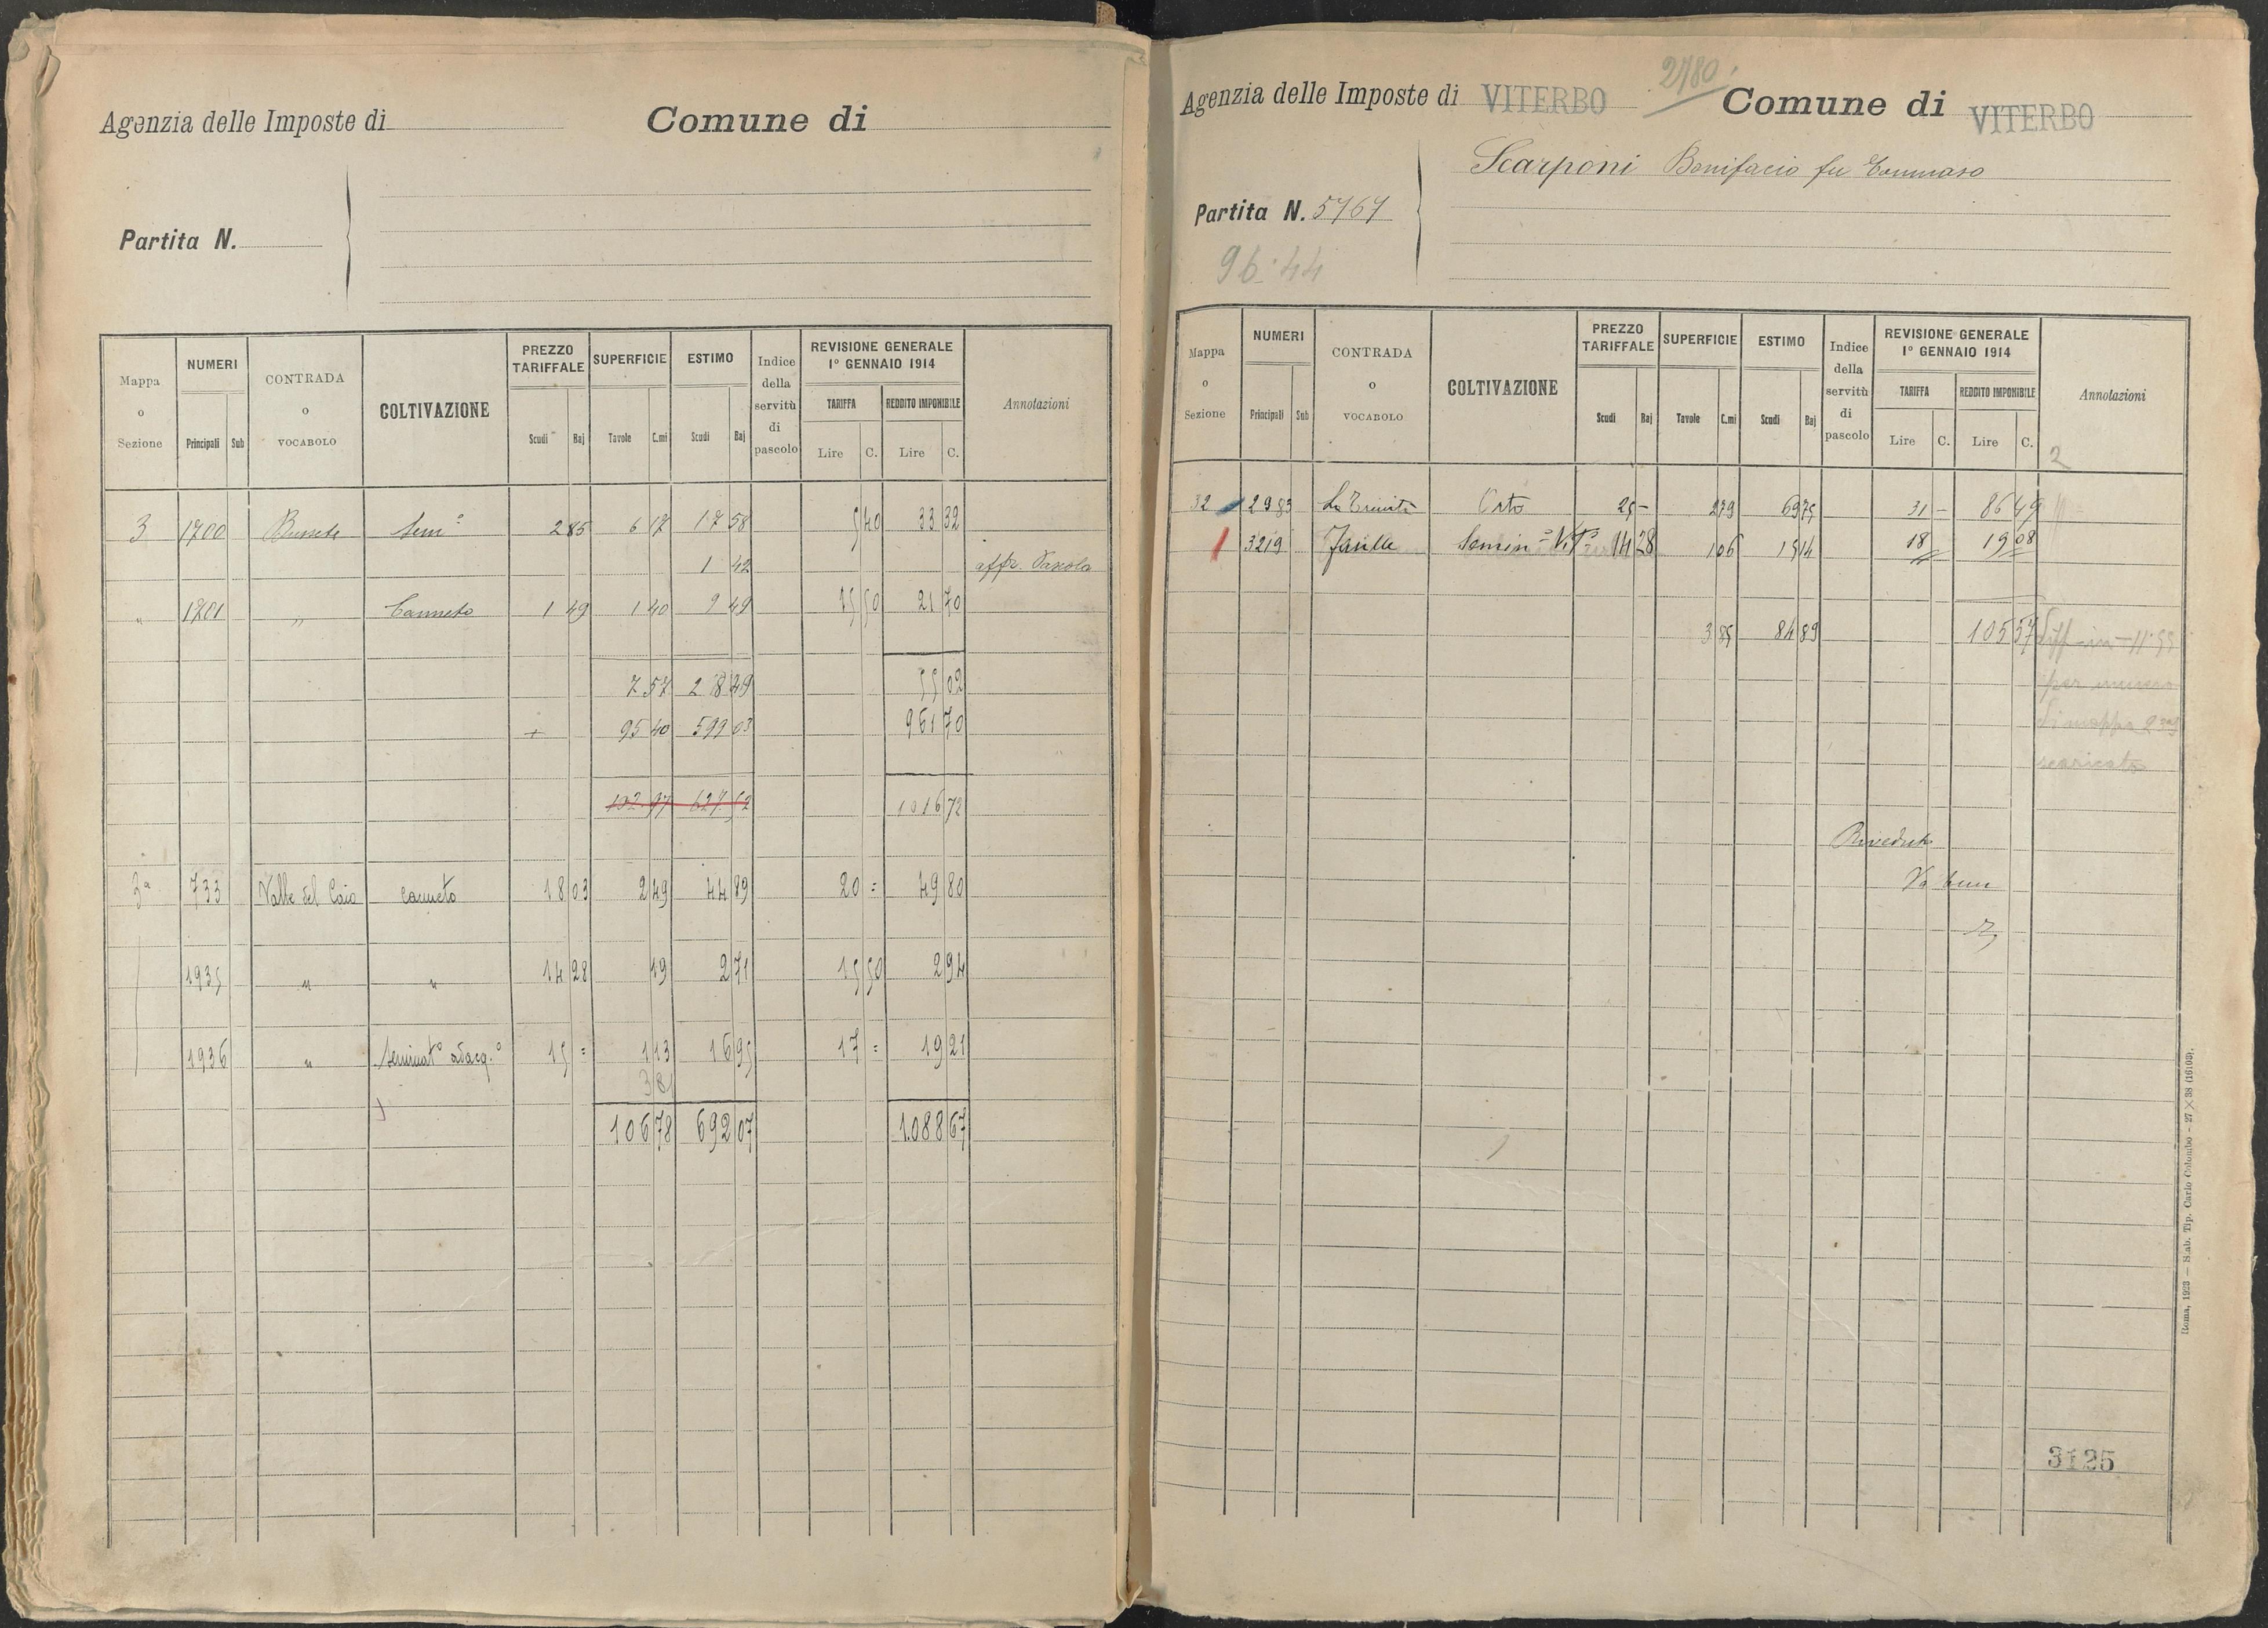 Agenzia delle Imposte di Comune di
Partita N.
Mappa o Sezione NUMERI Principali Sub CONTRADA o VOCABOLO COLTIVAZIONE PREZZO TARIFFALE Scudi Baj SUPERFICIE Tavole C.mi ESTIMO Scudi Baj Indice della servitù di pascolo REVISIONE GENERALE 1º GENNAIO 1914 TARIFFA Lire C. REDDITO IMPONIBILE Lire C. Annotazioni
3 1700 Bussete Semº 2 85 6 17 17 58 5 40 33 32
1 42 affr.
" 1701 " Canneto 1 49 1 40 9 49 15 50 21 70
7 57 28 49 55 02
+ 95 40 599 03 961 70
102 97 627 52 1016 72
3ª 733 Valle del Caio canneto 18 03 2 49 44 89 20 = 49 80
1935 " " 14 28 19 2 71 15 50 2 94
1936 " Seminatº adacq.º 15 = 1 13 16 95 17 = 19 21
106 78 692 07 1.088 67
Agenzia delle Imposte di VITERBO 2780 Comune di VITERBO
Scarponi Bonifacio fu Tommaso
Partita N. 5767
96.44
Mappa o Sezione NUMERI Principali Sub CONTRADA o VOCABOLO COLTIVAZIONE PREZZO TARIFFALE Scudi Baj SUPERFICIE Tavole C.mi ESTIMO Scudi Baj Indice della servitù di pascolo REVISIONE GENERALE 1º GENNAIO 1914 TARIFFA Lire C. REDDITO IMPONIBILE Lire C. Annotazioni
2
32 2983 La Trinità Orto 25 - 2 79 69 75 31 - 86 49
3219 Faulle Semin=Vitº 14 28 1 06 15 14 18 19 08
3 85 84 89 105 57 diff in - 11.55
per numero
di mappa
scaricato
Riveduta
Va bene
3125
Roma, 1923 — Stab. Tip. Carlo Colombo - 27 × 38 (16103).